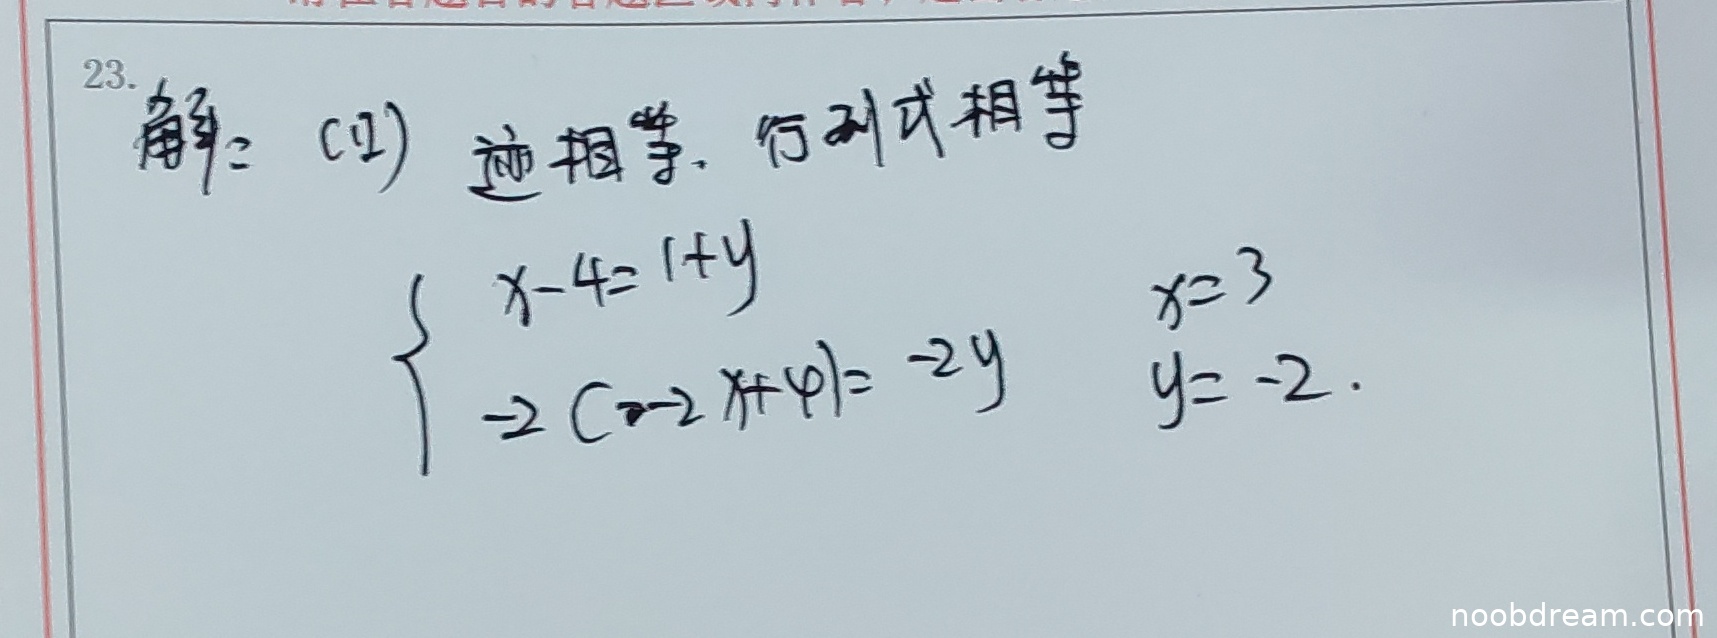 23.
解: (I) 迹相等. 行列式相等
x-4=1+y
-2(-2x+4)=-2y
x=3
y=-2.
noobdream.com